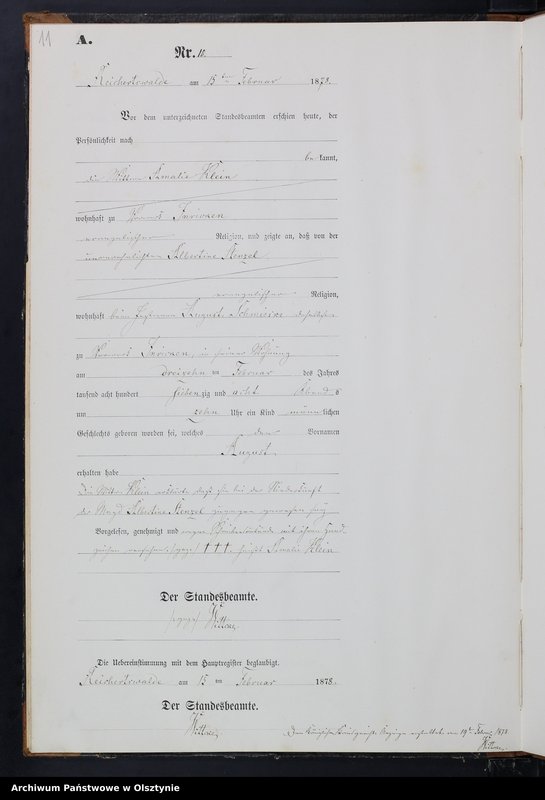 11
A.
Nr. 10.
Reichertswalde am 15ten Februar 1878.
Vor dem unterzeichneten Standesbeamten erschien heute, der
Persönlichkeit nach
be kannt,
die Amalie Klein
wohnhaft zu
evangelischer Religion, und zeigte an, daß von der
unverehelichten Albertine Stenzel
evangelischer Religion,
wohnhaft beim August
zu in seiner Wohnung
am dreizehn ten Februar des Jahres
tausend acht hundert sieben zig und acht Abend s
um zehn Uhr ein Kind männ lichen
Geschlechts geboren worden sei, welches den Vornamen
August
erhalten habe
Die Klein erklärte daß sie bei der Niederkunft
der Magd Albertine Stenzel zugegen gewesen sei
Vorgelesen, genehmigt und wegen mit ihrem Hand-
zeichen versehen. ††† Amalie Klein
Der Standesbeamte.
Die Uebereinstimmung mit dem Hauptregister beglaubigt.
Reichertswalde am 15 ten Februar 1878.
Der Standesbeamte.
Archiwum Państwowe w Olsztynie